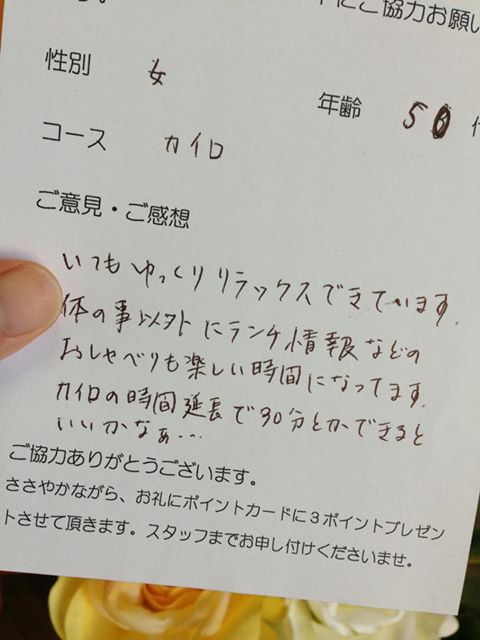 す。
にご協力お願い
性別 女
年齢 50代
コース カイロ
ご意見・ご感想
いつもゆっくりリラックスできています。
体の事以外にランチ情報などの
おしゃべりも楽しい時間になってます。
カイロの時間延長で30分とかできると
いいかなぁ…
ご協力ありがとうございます。
ささやかながら、お礼にポイントカードに3ポイントプレゼン
トさせて頂きます。スタッフまでお申し付けくださいませ。